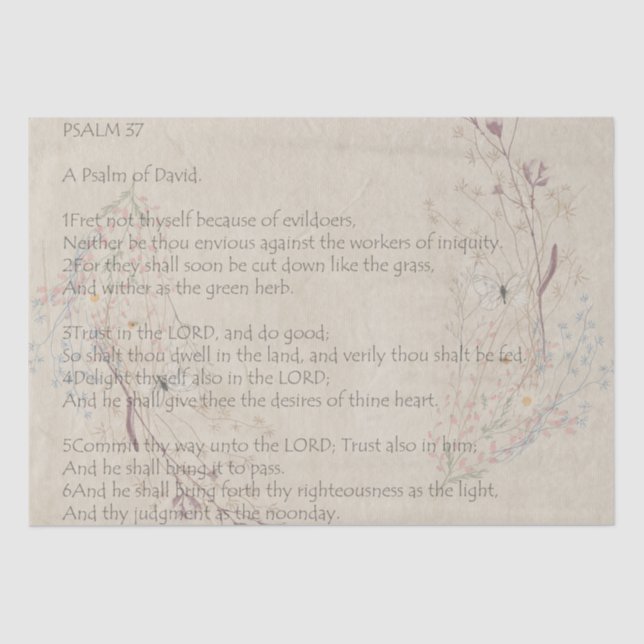 PSALM 37
A Psalm of David.
1Fret not thyself because of evildoers,
Neither be thou envious against the workers of iniquity.
2For they shall soon be cut down like the grass,
And wither as the green herb.
3Trust in the LORD, and do good;
So shalt thou dwell in the land, and verily thou shalt be fed.
4Delight thyself also in the LORD;
And he shall give thee the desires of thine heart.
5Commit thy way unto the LORD; Trust also in him;
And he shall bring it to pass.
6And he shall bring forth thy righteousness as the light,
And thy judgment as the noonday.